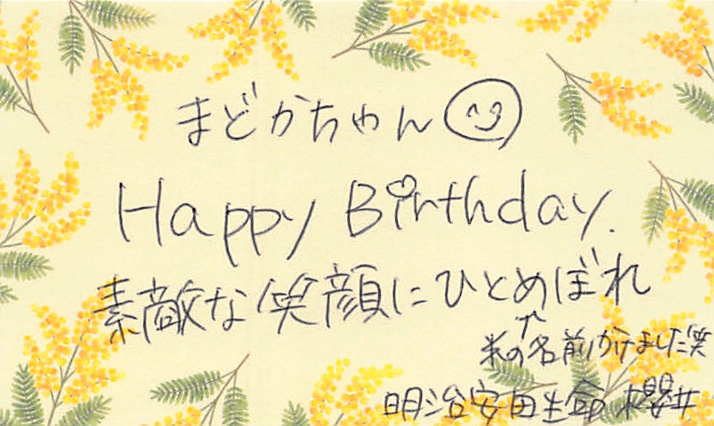 まどかちゃん
Happy Birthday.
素敵な笑顔にひとめぼれ
↑
米の名前かけました笑
明治安田生命 櫻井